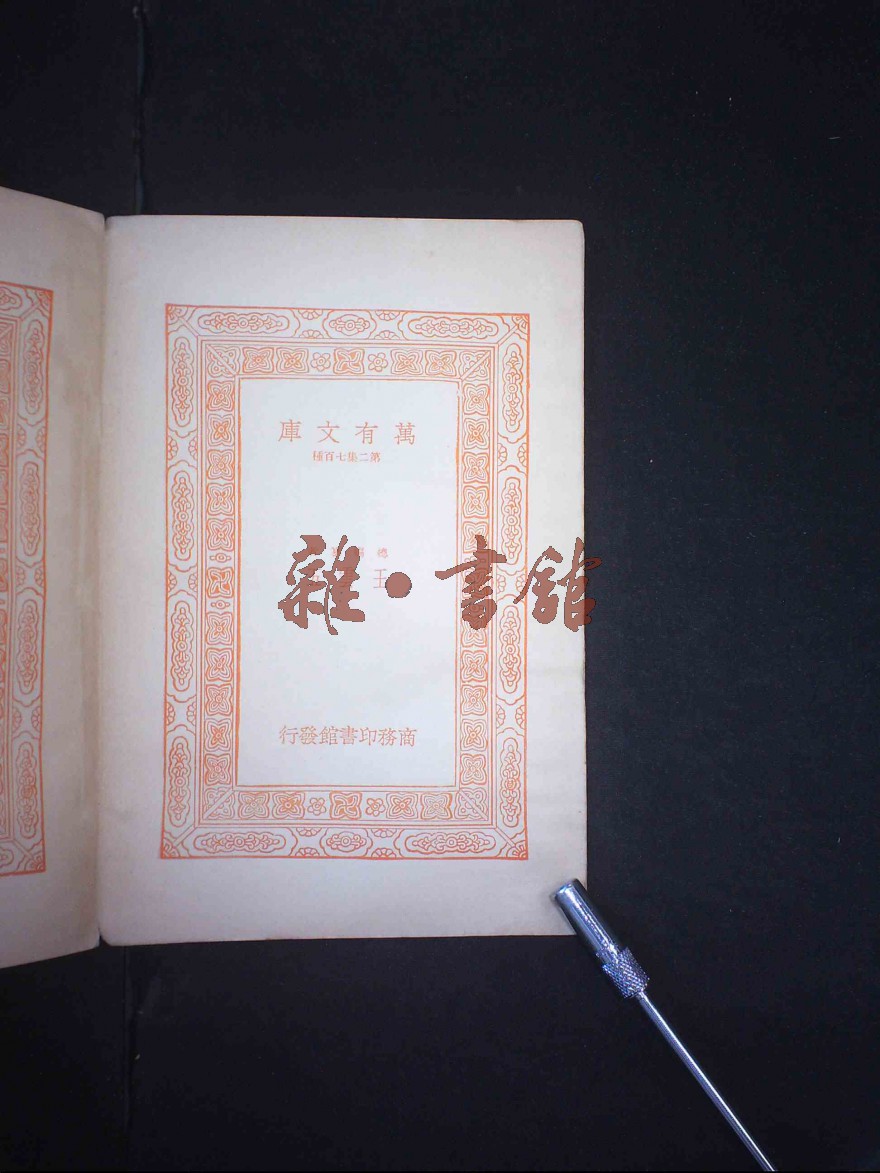 萬有文庫
第二集七百種
總
王
商務印書館發行
雜•書館